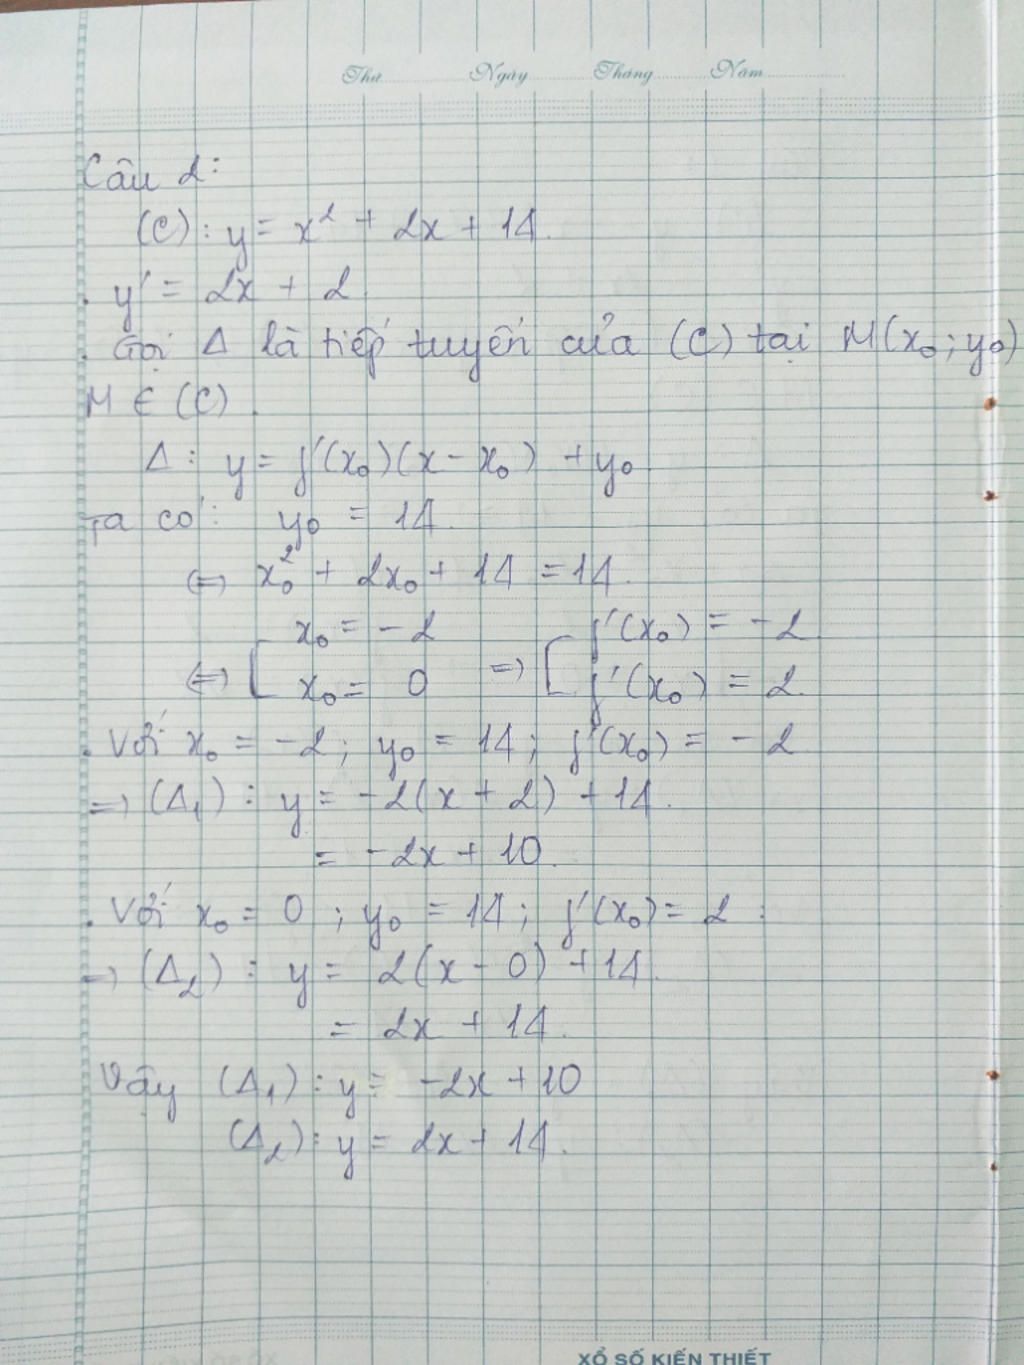 Thứ Ngày Tháng Năm
Câu 2:
(C): y = x² + 2x + 14.
. y' = 2x + 2
. Gọi Δ là tiếp tuyến của (C) tại M(x₀; y₀)
M ∈ (C).
Δ: y = f'(x₀)(x - x₀) + y₀
Ta có: y₀ = 14.
⇔ x₀² + 2x₀ + 14 = 14.
⇔ [ x₀ = -2 ⇒ [ f'(x₀) = -2
x₀ = 0 f'(x₀) = 2.
. Với x₀ = -2; y₀ = 14; f'(x₀) = -2
⇒ (Δ₁): y = -2(x + 2) + 14.
= -2x + 10.
. Với x₀ = 0; y₀ = 14; f'(x₀) = 2:
⇒ (Δ₂): y = 2(x - 0) + 14.
= 2x + 14.
Vậy (Δ₁): y = -2x + 10
(Δ₂): y = 2x + 14.
XỔ SỐ KIẾN THIẾT